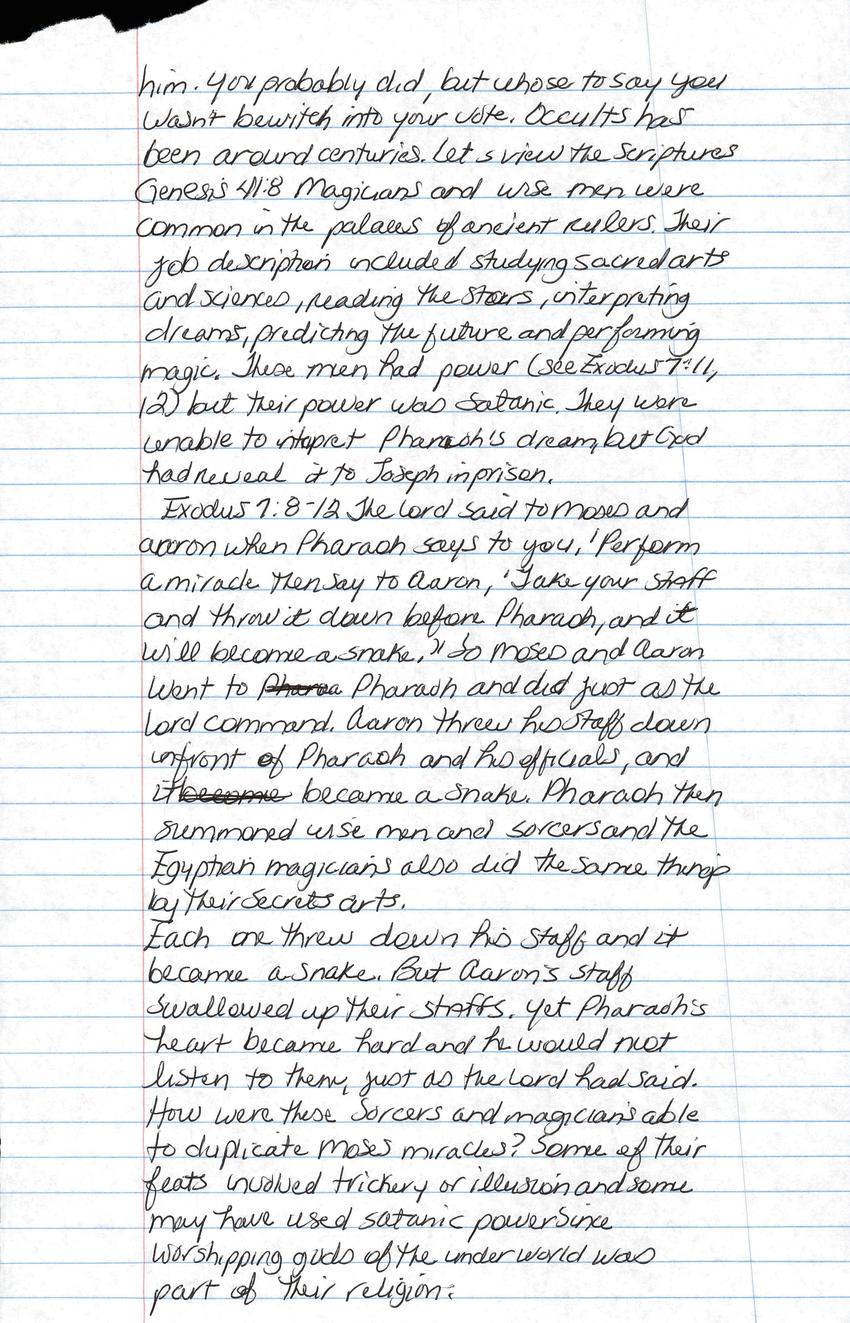 him. You probably did, but whose to say you
wasn't bewitch into your vote. Occults has
been around centuries. Let s view the Scriptures
Genesis 41:8 Magicians and wise men were
common in the palaces of ancient rulers. Their
job description included studying sacred arts
and sciences, reading the stars, interpreting
dreams, predicting the future and performing
magic. These men had power (see Exodus 7:11,
12) but their power was Satanic. They were
unable to intepret Pharaoh's dream, but God
had reveal it to Joseph in prison.
Exodus 7:8-12 The Lord said to Moses and
aaron when Pharaoh says to you, 'Perform
a miracle then say to Aaron, 'Take your staff
and throw it down before Pharaoh, and it
will become a snake." So Moses and Aaron
went to Pharoa Pharaoh and did just as the
Lord command. Aaron threw his staff down
infront of Pharaoh and his officials, and
it become became a snake. Pharaoh then
summoned wise men and sorcers and the
Egyptian magicians also did the same things
by their secrets arts.
Each one threw down his staff and it
became a snake. But Aaron's staff
swallowed up their staffs. Yet Pharaoh's
heart became hard and he would not
listen to them, just as the Lord had said.
How were these Sorcers and magician's able
to duplicate Moses miracles? Some of their
feats involved trickery or illusion and some
may have used satanic power since
worshipping gods of the underworld was
part of their religion.